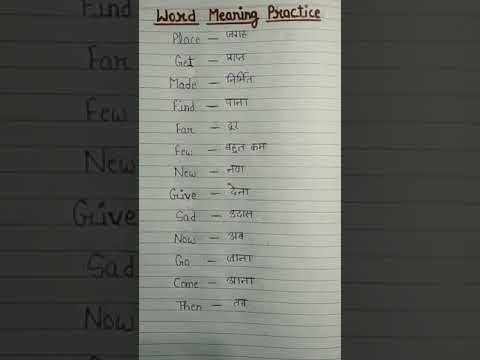 Word Meaning Practice
Place – जगह
Get – प्राप्त
Made – निर्मित
Find – पाना
Far – दूर
Few – बहुत कम
New – नया
Give – देना
Sad – उदास
Now – अब
Go – जाना
Come – आना
Then – तब